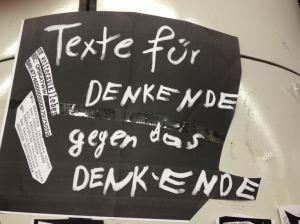 Texte für
DENKENDE
gegen das
DENK-ENDE